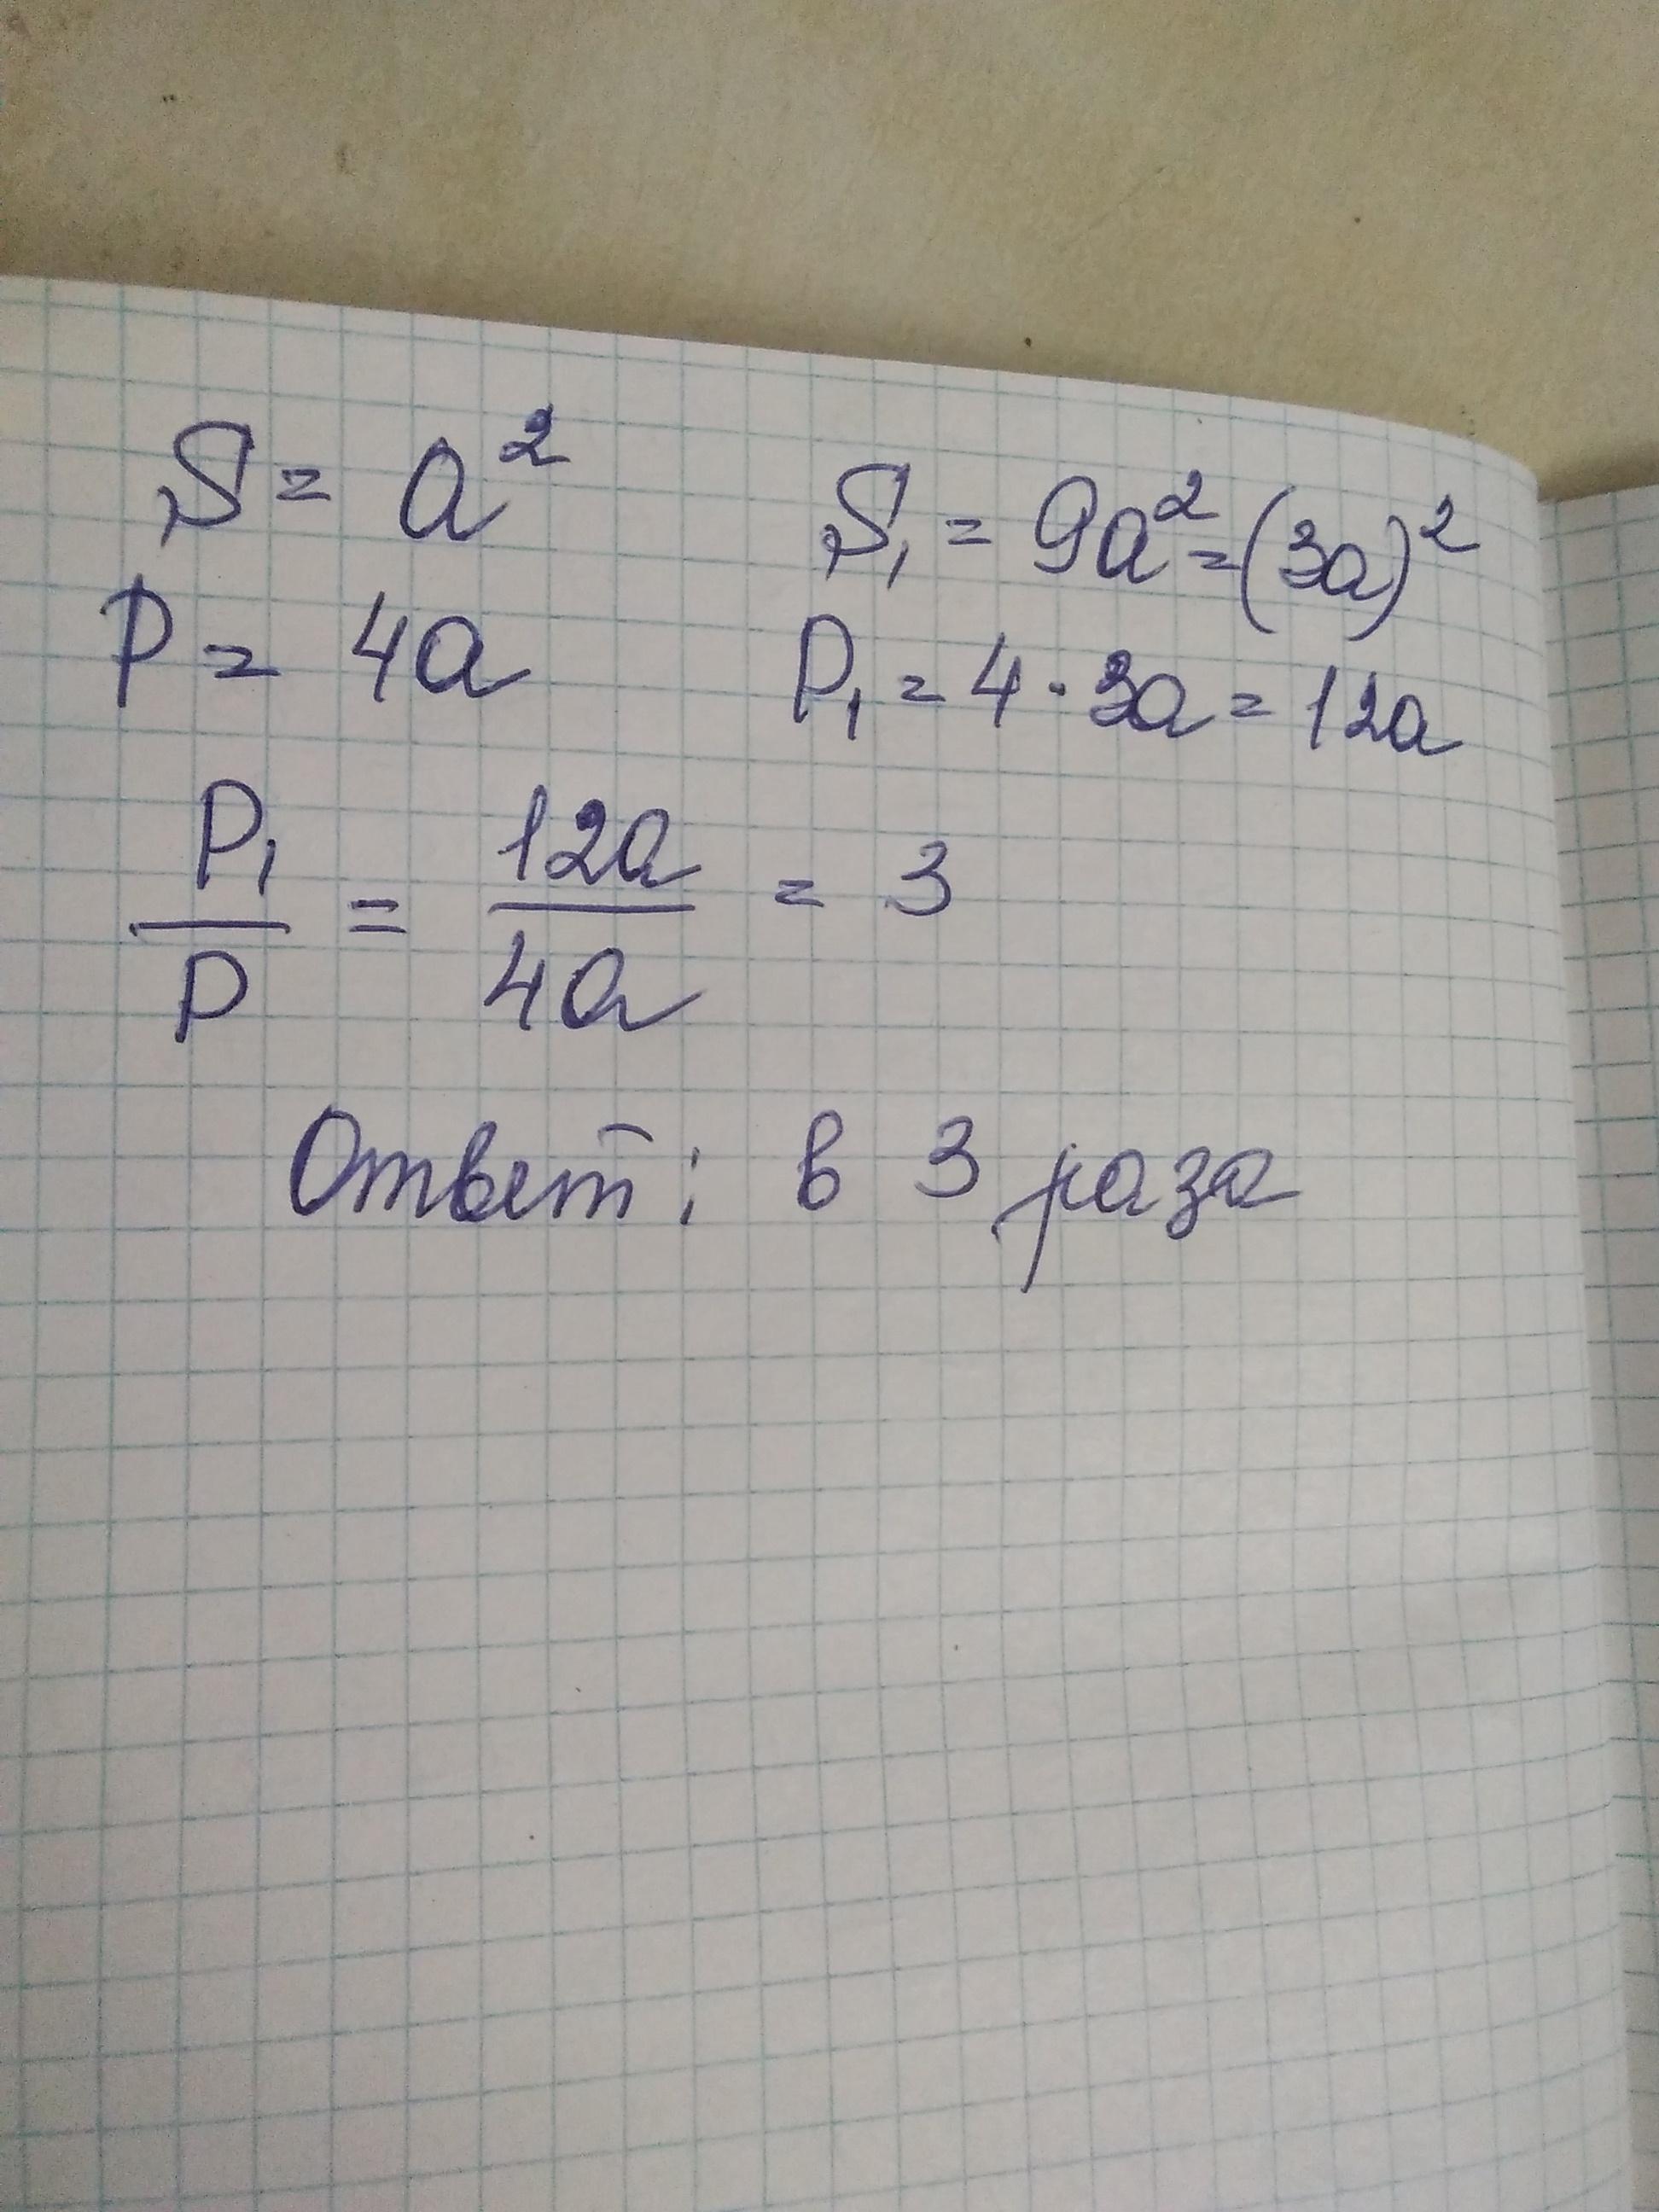 S = a² S₁ = 9a² = (3a)²
P = 4a P₁ = 4 · 3a = 12a
P₁/P = 12a/4a = 3
Ответ: в 3 раза